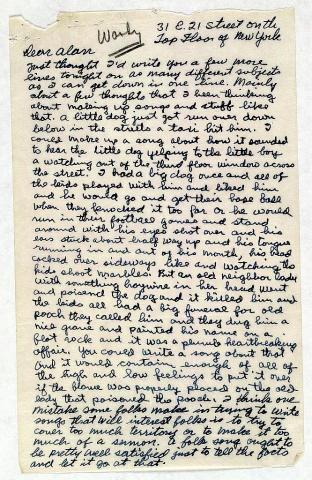 Woody
31 E. 21 Street on the
Top Floor of New Yorke
Dear Alan
Just thought I'd write you a few more
lines tonight on as many different subjects
as I can get down in one time. Mainly
about a few thoughts that I been thinking
about making up songs and stuff like
that. A little dog just got run over down
below in the streets a taxi hit him. I
could make up a song about how it sounded
to hear the little dog yelping to the little boy
a watching out of the third floor window across
the street. I had a big dog once and all of
the kids played with him and liked him
and he would go and get their base ball
when they knocked it too far or he would
run in their football games and stand
around with his eyes shot over and his
ears stuck about half way up and his tongue
running in and out of his mouth, his head
cocked over sideways like and watching the
kids shoot marbles. But an old neighbor lady
with something haywire in her head went
and poisend the dog and it killed him and
the kids all had a big funeral for old
pooch they called him and they dug him a
nice grave and painted his name on a
flat rock and it was a plumb heartbreaking
affair. You could write a song about that
and it would contain enough of all of
the high and low feelings to put it over
if the blame was properly placed on the old
lady that poisoned the pooch. I think one
mistake some folks make in trying to write
songs that will interest folks is to try to
cover too much territory or to make it too
much of a sermon. A folk song ought to
be pretty well satisfied just to tell the facts
and let it go at that.